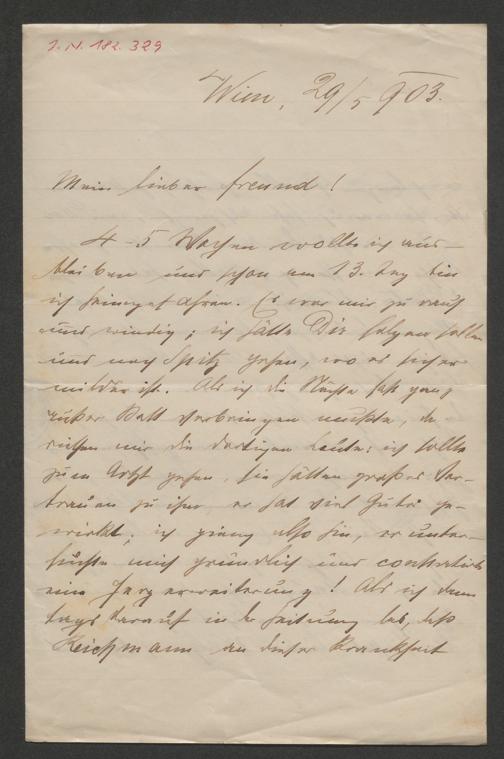 J. N. 182.329
Wien, 29/5 903.
Mein lieber Freund!
4-5 Wochen wollte ich aus-
bleiben und schon am 13. Tag bin
ich heimgefahren. Es war mir zu rauh
und windig; ich hätte Dir folgen sollen
und nach Spitz gehen, wo es sicher
milder ist. Als ich die Nächte fast ganz
außer Bett verbringen mußte, da
riethen mir die dortigen Leute: ich sollte
zum Arzt gehen, sie hätten großes Ver-
trauen zu ihm, er hat viel Gutes ge-
wirkt; ich gieng also hin, er unter-
suchte mich gründlich und constatirte
eine Herzerweiterung! Als ich dann
tags darauf in der Zeitung las, daß
Reichmann an dieser Krankheit